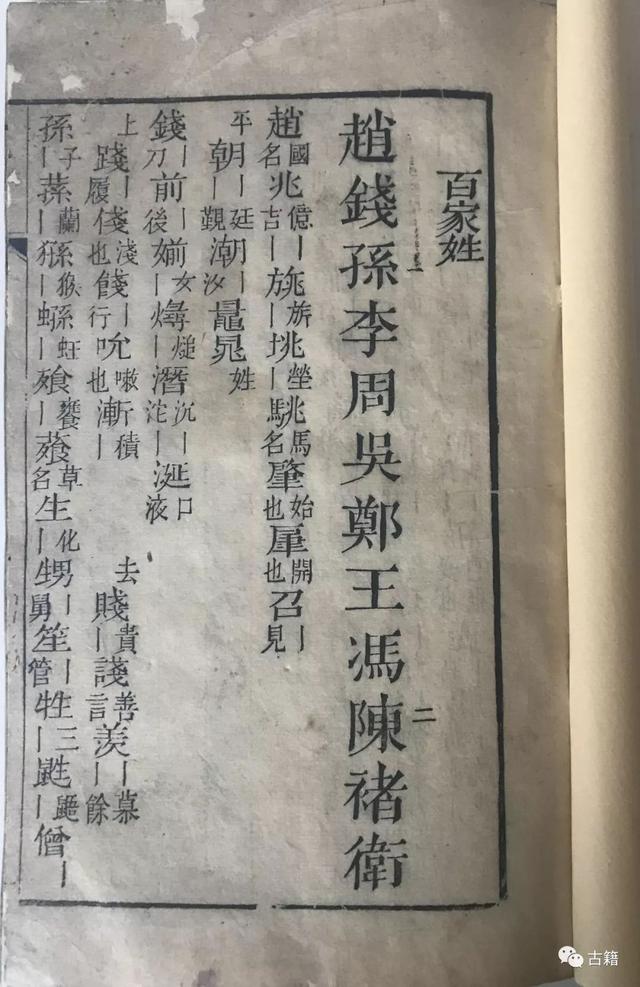 百家姓
趙錢孫李周吳鄭王馮陳褚衛
一
二
趙國名兆億丨吉丨旐旂丨垗塋丨駣馬名肇始也肁開也召丨見
平朝丨廷丨覲潮丨汐鼂鼌姓
錢丨刀前丨後媊女丨燖丨潛沉丨涎口液
上踐丨履俴淺也餞丨行吮嗽也漸積丨去賤丨貴諓善言羨丨慕丨餘
孫子丨蓀蘭丨猻猴丨飧饔丨蕵草名生化丨甥丨舅笙丨管牲三丨鼪丨僧丨
古籍